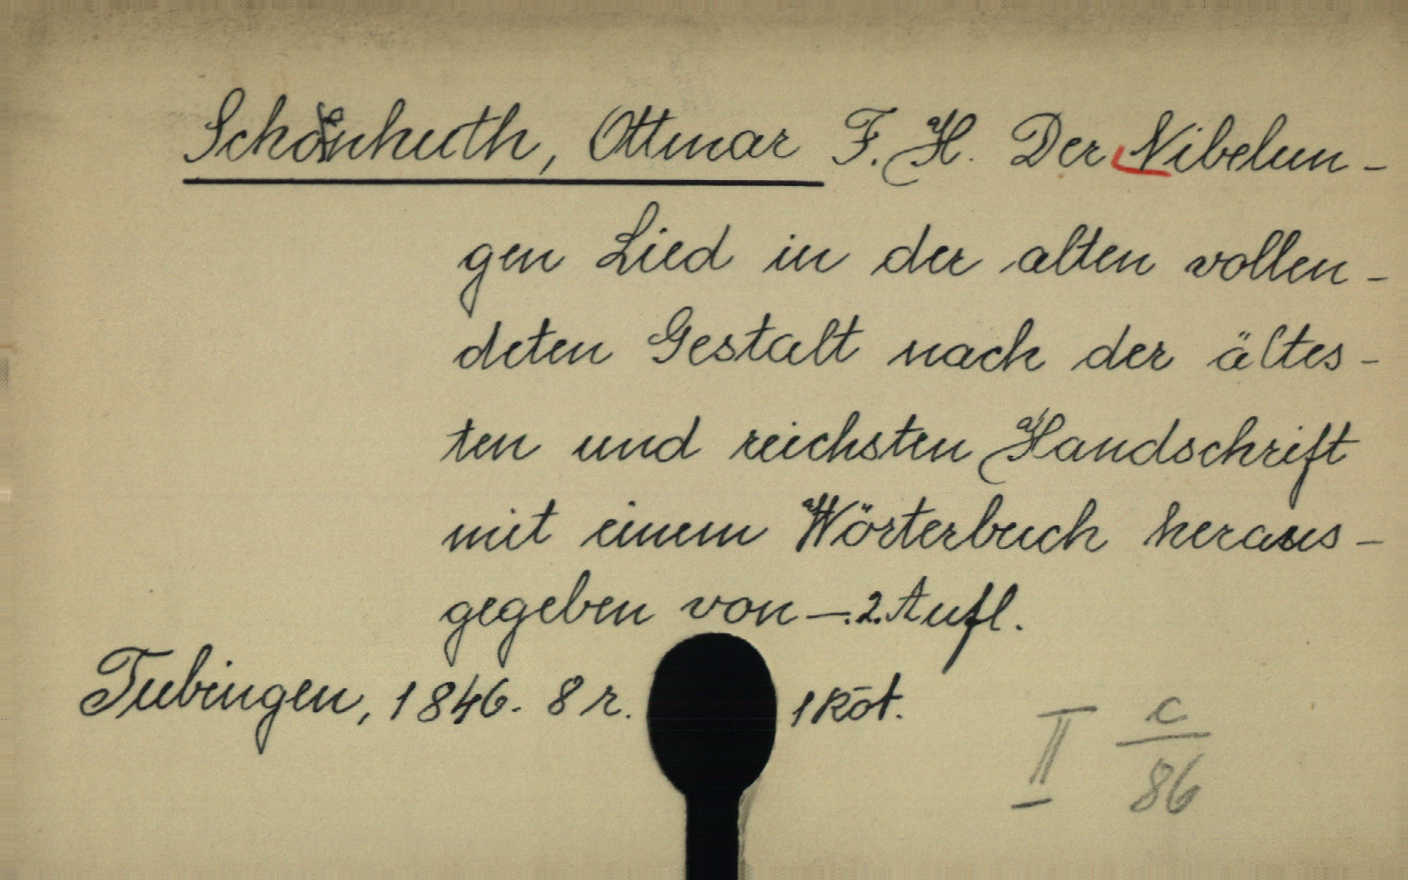 Schönhuth, Ottmar F. H. Der Nibelun-
gen Lied in der alten vollen-
deten Gestalt nach der ältes-
ten und reichsten Handschrift
mit einem Wörterbuch heraus-
gegeben von —. 2. Aufl.
Tubingen, 1846. 8 r. 1 Köt.
II c/86